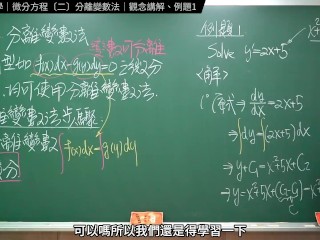 學｜微分方程〔二〕分離變數法｜觀念講解、例題1
分離變數法
變數可分離
型如 f(x)dx - g(y)dy = 0 之
均可使用分離變數法.
變數法步驟
f(x)dx = ∫g(y)dy
例題1
Solve y' = 2x+5
<解>
(1) 原式 ⇒ dy/dx = 2x+5
⇒ ∫dy = ∫(2x+5)dx
⇒ y+C₁ = x²+5x+C₂
⇒ y = x²+5x+(C₂-C₁)
C
可以嗎所以我們還是得學習一下